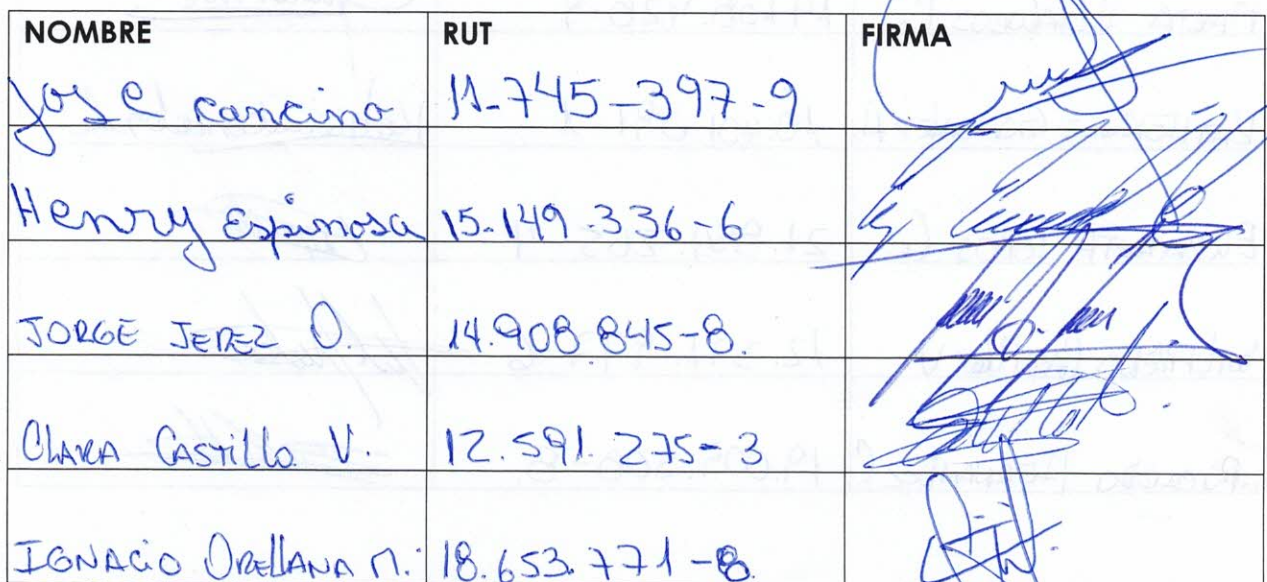 NOMBRE RUT FIRMA
Jose Cancino 11-745-397-9
Henry Espinosa 15-149-336-6
JORGE JEREZ O. 14.908.845-8.
CLARA CASTILLO V. 12.591.275-3
IGNACIO ORELLANA M. 18.653.771-8